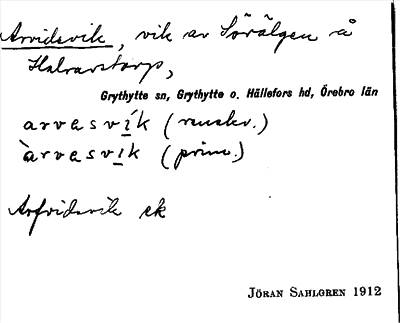 Arvidsvik, vik av Sörälgen å
Halvarstorp,
Grythytte sn, Grythytte o. Hällefors hd, Örebro län
arvasvík (renskr.)
àrvasvik (prim.)
Arfvidsvik ek
JÖRAN SAHLGREN 1912